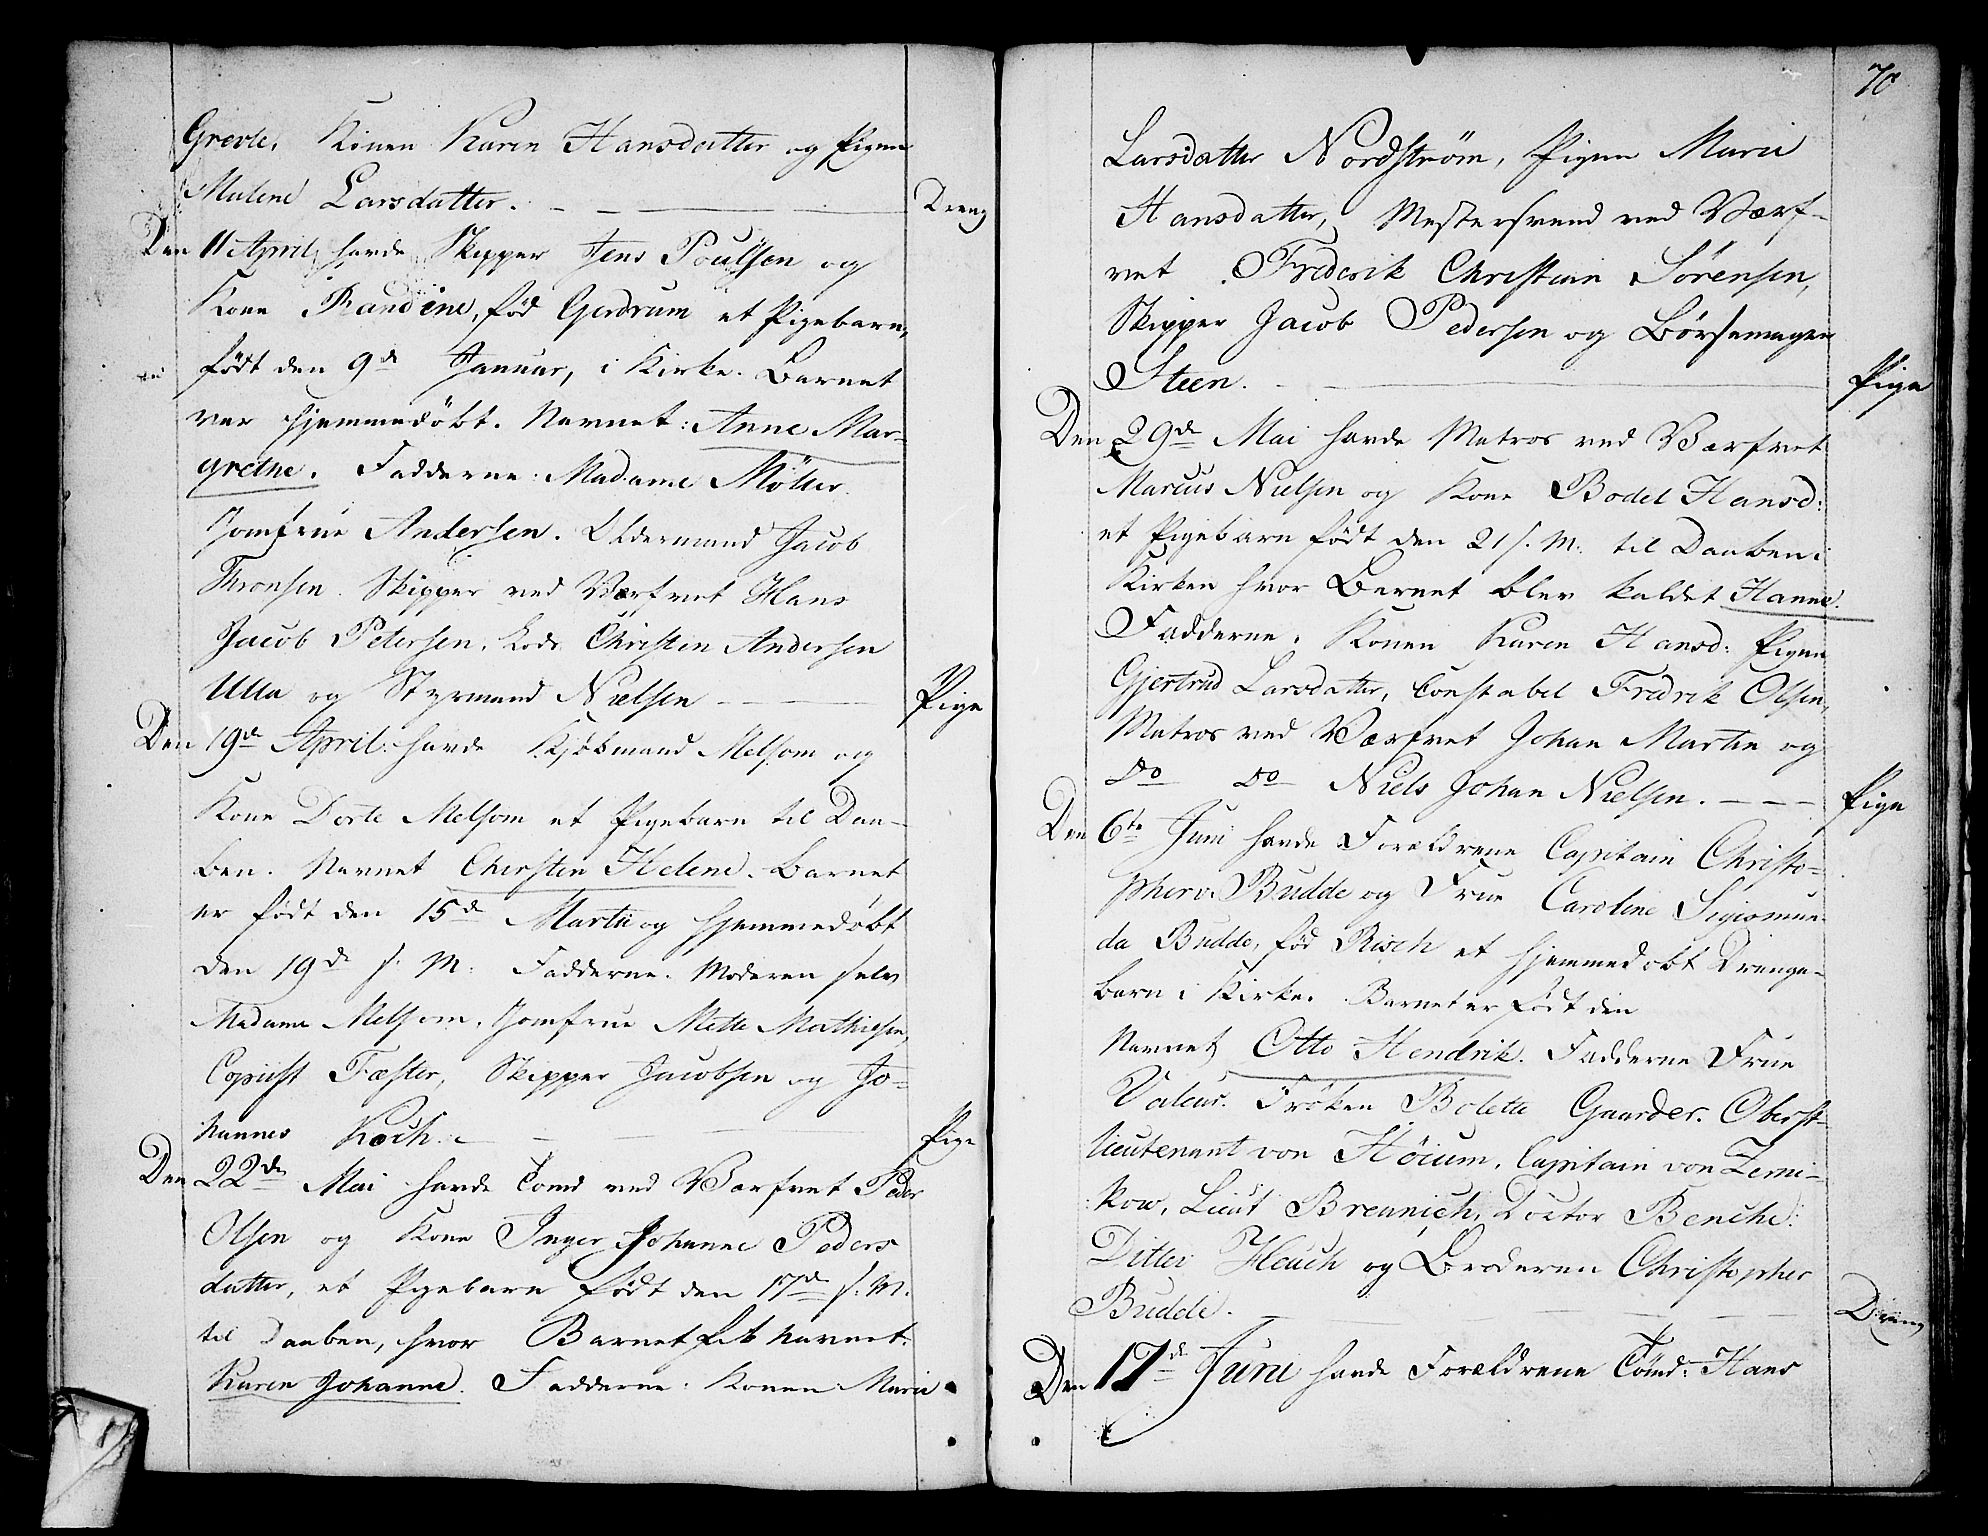 Konen Karen Hansdatter og Pigen
Malene Larsdatter. Dreng
Den 11 April havde Skipper Jens Poulsen og
Kone Randine, fød Gerdrum et Pigebarn,
født den 9de Januar, i Kirke. Barnet
var hjemmedøbt. Navnet: Anne Mar-
grethe. Fadderne: Madame Möller.
Jomfrue Andersen. Oldermand Jacob
Thronsen. Skipper ved Værfvet Hans
Jacob Petersen. Lods Christen Andersen
Ulla og Styrmand Nielsen Pige
Den 19de April havde Kjøbmand Melsom og
Kone Dorte Melsom et Pigebarn til Daa-
ben. Navnet Chirsten Helene. Barnet
er født den 15de Martii og hjemmedøbt
den 19de s. M. Fadderne. Moderen selv
Madame Melsom, Jomfrue Mette Mathiesen,
Copiist Fæster, Skipper Jacobsen og Jo-
hannes Koch. Pige
Den 22de Mai havde Tømd ved Værfvet Peder
Olsen og Kone Inger Johanne Peders
datter, et Pigebarn født den 17de s. M.
til Daaben, hvor Barnet fik Navnet:
Karen Johanne. Fadderne: Konen Marie
70
Larsdatter Nordstrøm, Pigen Marie
Hansdatter, Mestersvend ved Værf-
vet Frederik Christian Sørensen,
Skipper Jacob Pedersen og Børsemager
Steen. Pige
Den 29de Mai havde Matros ved Værfvet
Marcus Nielsen og Kone Bodel Hansd:
et Pigebarn født den 21 s. M. til Daaben i
Kirken hvor Barnet blev kaldet Hanne.
Fadderne. Konen Karen Hansd: Pigen
Gjertrud Larsdatter, Constabel Fredrik Olsen,
Matros ved Værfvet Johan Martin og
Do Do Niels Johan Nielsen. Pige
Den 6te Juni havde Forældrene Capitain Christo-
pher v. Budde og Frue Caroline Sigismun-
da Budde, fød Risch et hjemmedøbt Drenge-
barn i Kirke. Barnet er født den
Navnet Otto Hendrik. Fadderne Frue
Valeur. Frøken Bolette Gaarder. Oberst-
lieutenant von Høium, Capitain von Zerni-
kow, Lieut Breunich, Doctor Benche.
Ditlev Heuch og Broderen Christopher
Budde. Dreng
Den 17de Juni havde Forældrene Tömd: Hans